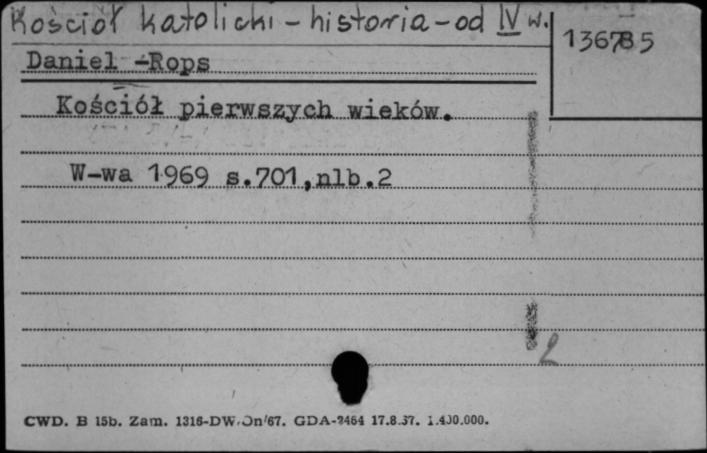 Kościół katolicki - historia - od IV w.
136785
Daniel -Rops
Kościół pierwszych wieków.
W-wa 1969 s.701,nlb.2
2
CWD. B 15b. Zam. 1316-DW. On/67. GDA-2464 17.8.67. 1.400.000.